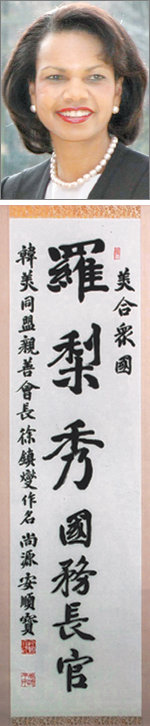 美合衆國
羅梨秀國務長官
韓美同盟親善會長 徐鎭燮作名 尚源安順寶